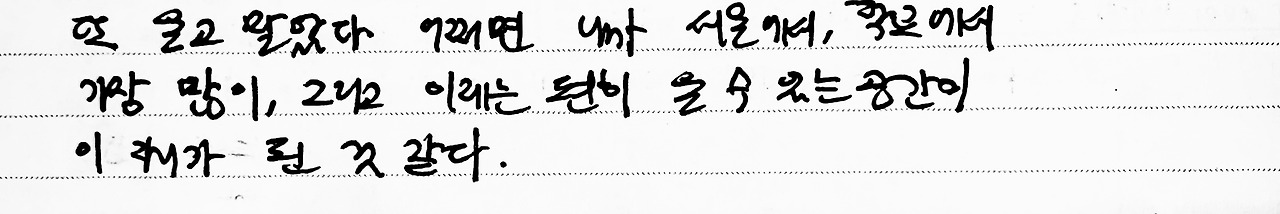 또 울고 말았다 어쩌면 내가 서울에서, 학교에서
가장 많이, 그리고 이래는 편히 울 수 있는 공간이
이 가 된 것 같다.